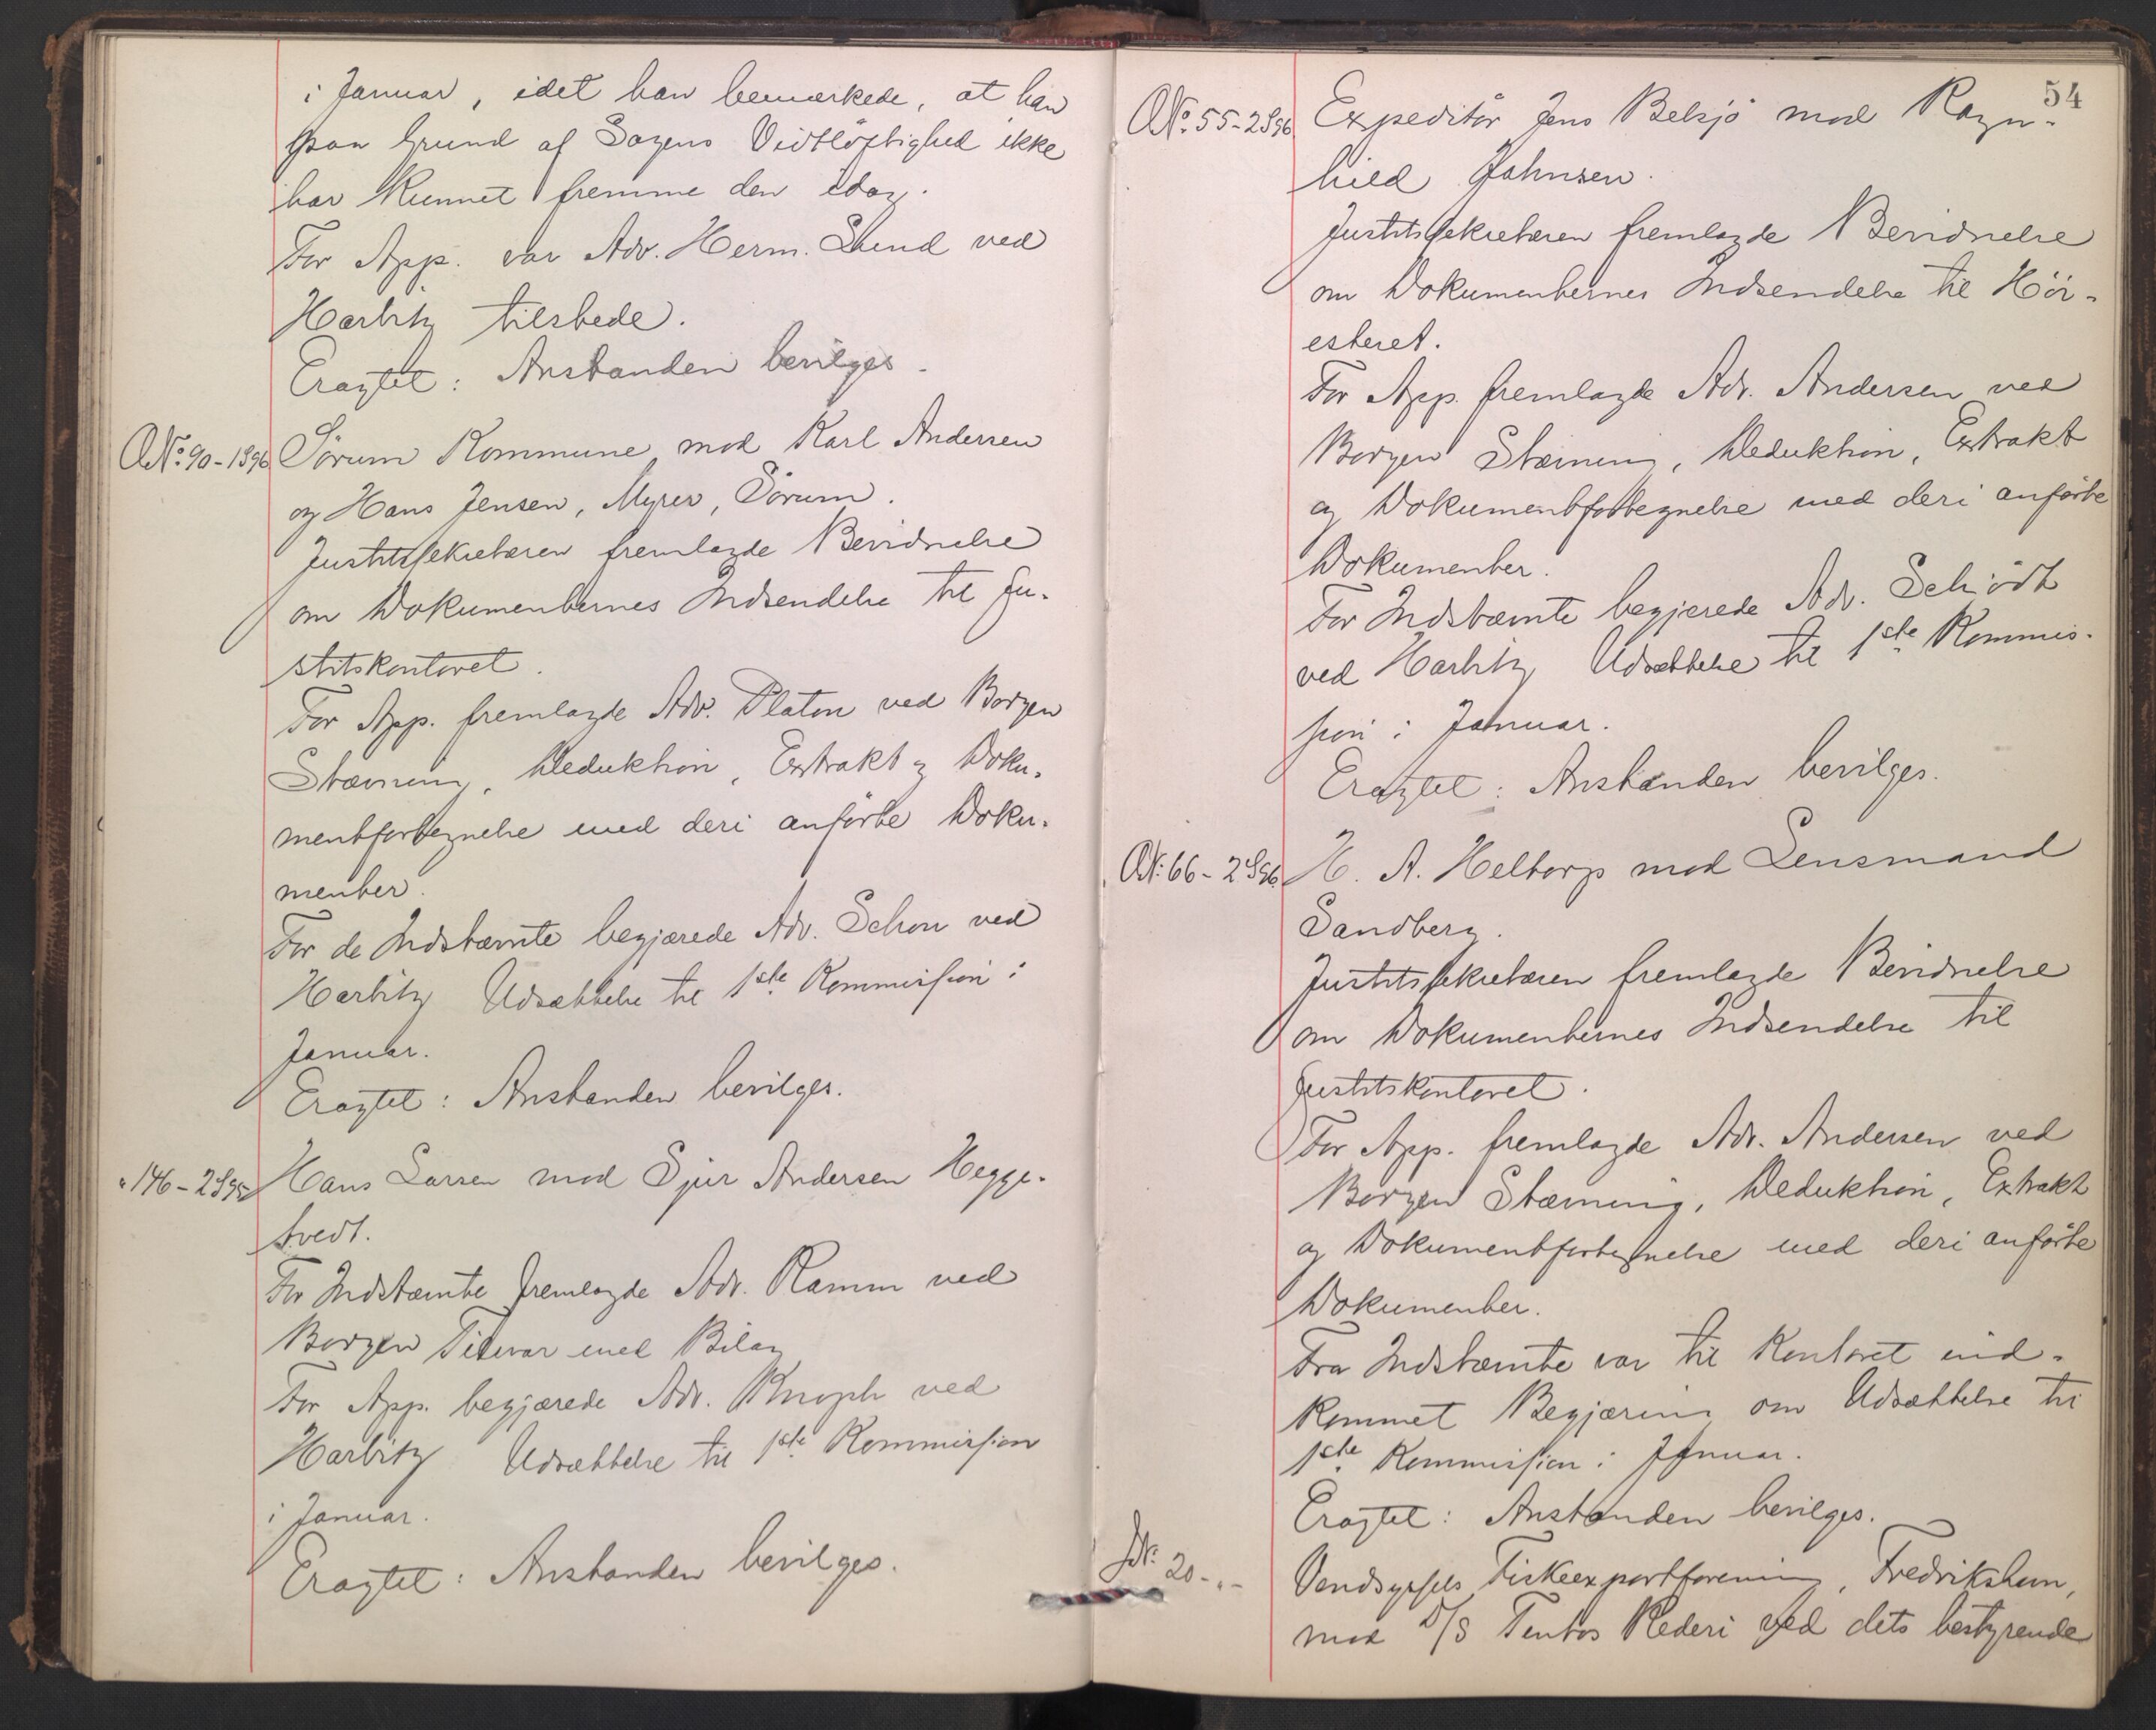 i Januar, idet han bemærkede, at han
paa Grund af Sagens Vidtløftighed ikke
har kunnet fremme den idag.
For App. var Adv. Herm. Lund ved
Harbitz tilstede.
Eragtet: Anstanden bevilges.
No. 90 - 1896 Sørum Kommune mod Karl Andersen
og Hans Jensen, Myrer, Sørum.
Justitssekretæren fremlagde Bevidnelse
om Dokumenternes Indsendelse til Ju-
stitskontoret.
For App. fremlagde Adv. Platou ved Borgen
Stævning, Deduktion, Extrakt og Doku-
mentfortegnelse med deri anførte Doku-
menter.
For de Indstævnte begjærede Adv. Schou ved
Harbitz Udsættelse til 1ste Kommission i
Januar.
Eragtet: Anstanden bevilges.
" 146 - 2 S 95 Hans Larsen mod Sjur Andersen Hegge-
tvedt.
For Indstævnte fremlagde Adv. Ramm ved
Borgen Tilsvar med Bilag
For App. begjærede Adv. Knoph ved
Harbitz Udsættelse til 1ste Kommission
i Januar.
Eragtet: Anstanden bevilges.
54
No. 55 - 2 S 96 Expeditør Jens Belsjø mod Ragn-
hild Johnsen.
Justitssekretæren fremlagde Bevidnelse
om Dokumenternes Indsendelse til Høi-
esteret.
For App. fremlagde Adv. Andersen ved
Borgen Stævning, Deduktion, Extrakt
og Dokumentfortegnelse med deri anførte
Dokumenter.
For Indstævnte begjærede Adv. Schiødt
ved Harbitz Udsættelse til 1ste Kommis-
sion i Januar.
Eragtet: Anstanden bevilges.
N: 66 - 2 S 96 H. A. Heltorp mod Lensmand
Sandberg.
Justitssekretæren fremlagde Bevidnelse
om Dokumenternes Indsendelse til
Justitskontoret.
For App. fremlagde Adv. Andersen ved
Borgen Stævning, Deduktion, Extrakt
og Dokumentfortegnelse med deri anførte
Dokumenter.
Fra Indstævnte var til Kontoret ind-
kommet Begjæring om Udsættelse til
1ste Kommission i Januar.
Eragtet: Anstanden bevilges.
No: 20 - " - Vendsyssels Fiskeexportforening, Fredrikshavn,
mod D/S Rederi ved dets bestyrende